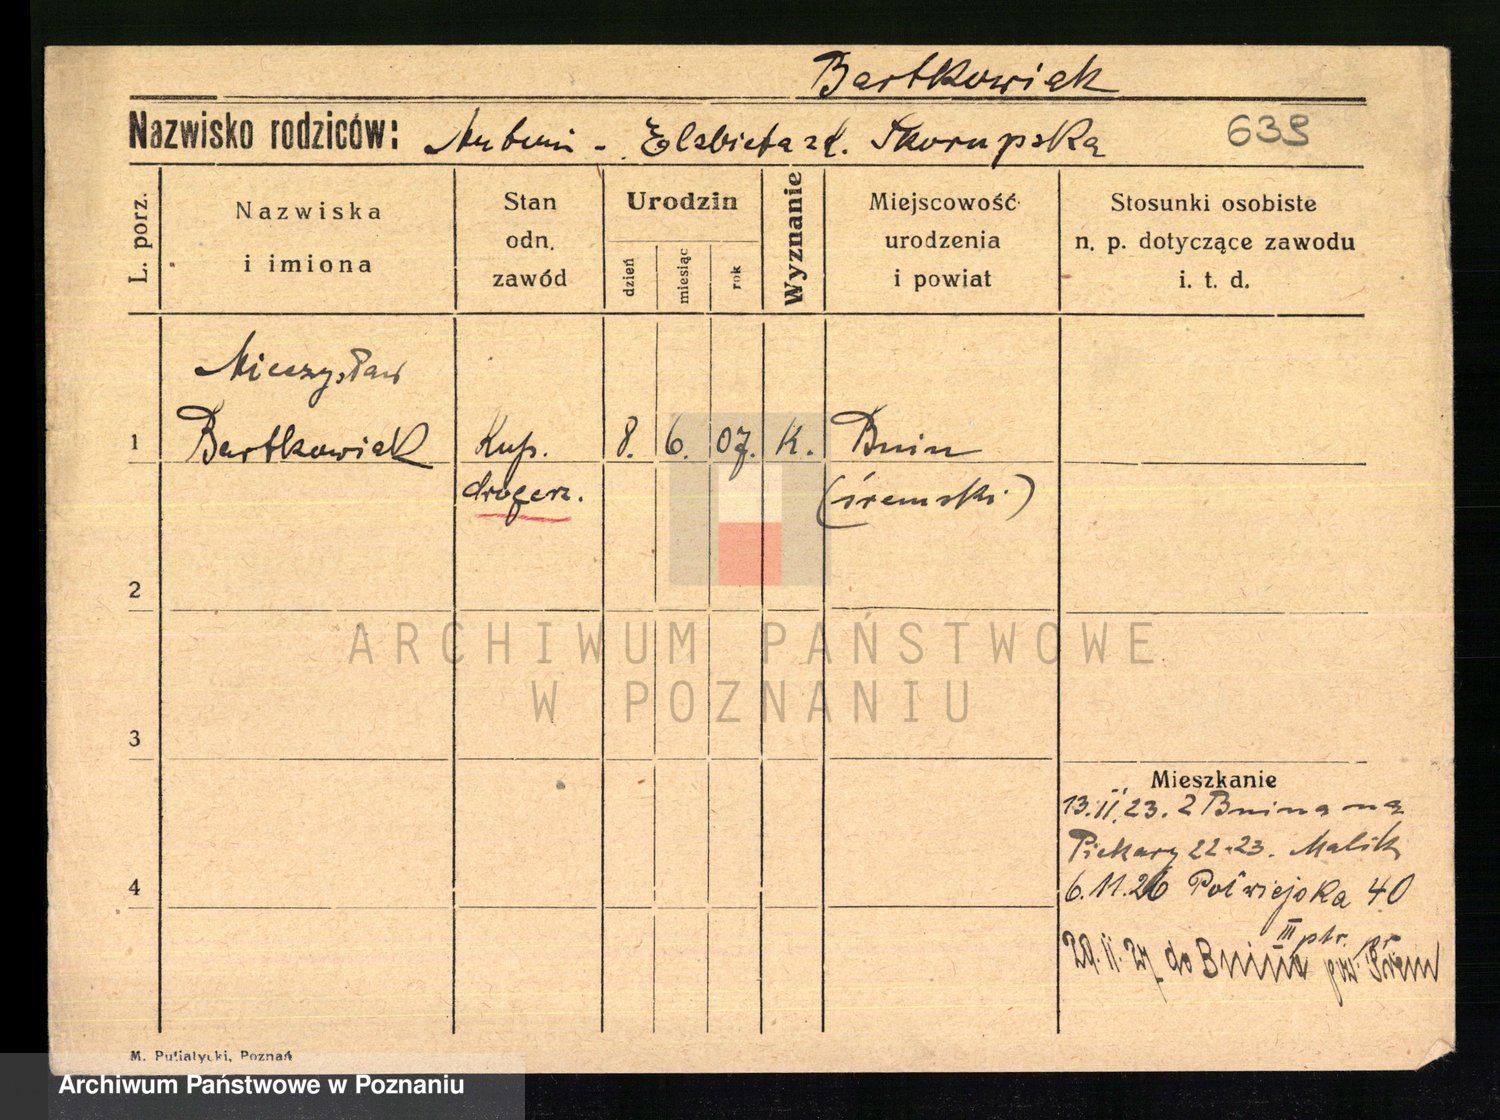 Bartkowiak
Nazwisko rodziców: Antoni - Elżbieta zd. Skorupska 639
L. porz.
Nazwiska
i imiona
Stan
odn.
zawód
Urodzin
dzień
miesiąc
rok
Wyznanie
Miejscowość
urodzenia
i powiat
Stosunki osobiste
n. p. dotyczące zawodu
i. t. d.
Mieczysław
1 Bartkowiak Kup. 8. 6. 07. K. Bnin
drogerz. (śremski)
2
ARCHIWUM PAŃSTWOWE
W POZNANIU
3
Mieszkanie
13.II.23. z Bnina na
Piekary 22-23. Malik
4
6.11.26 Półwiejska 40
III ptr. pr
29.II.27 do Bnina pw. Śrem
M. Putiatycki, Poznań
Archiwum Państwowe w Poznaniu